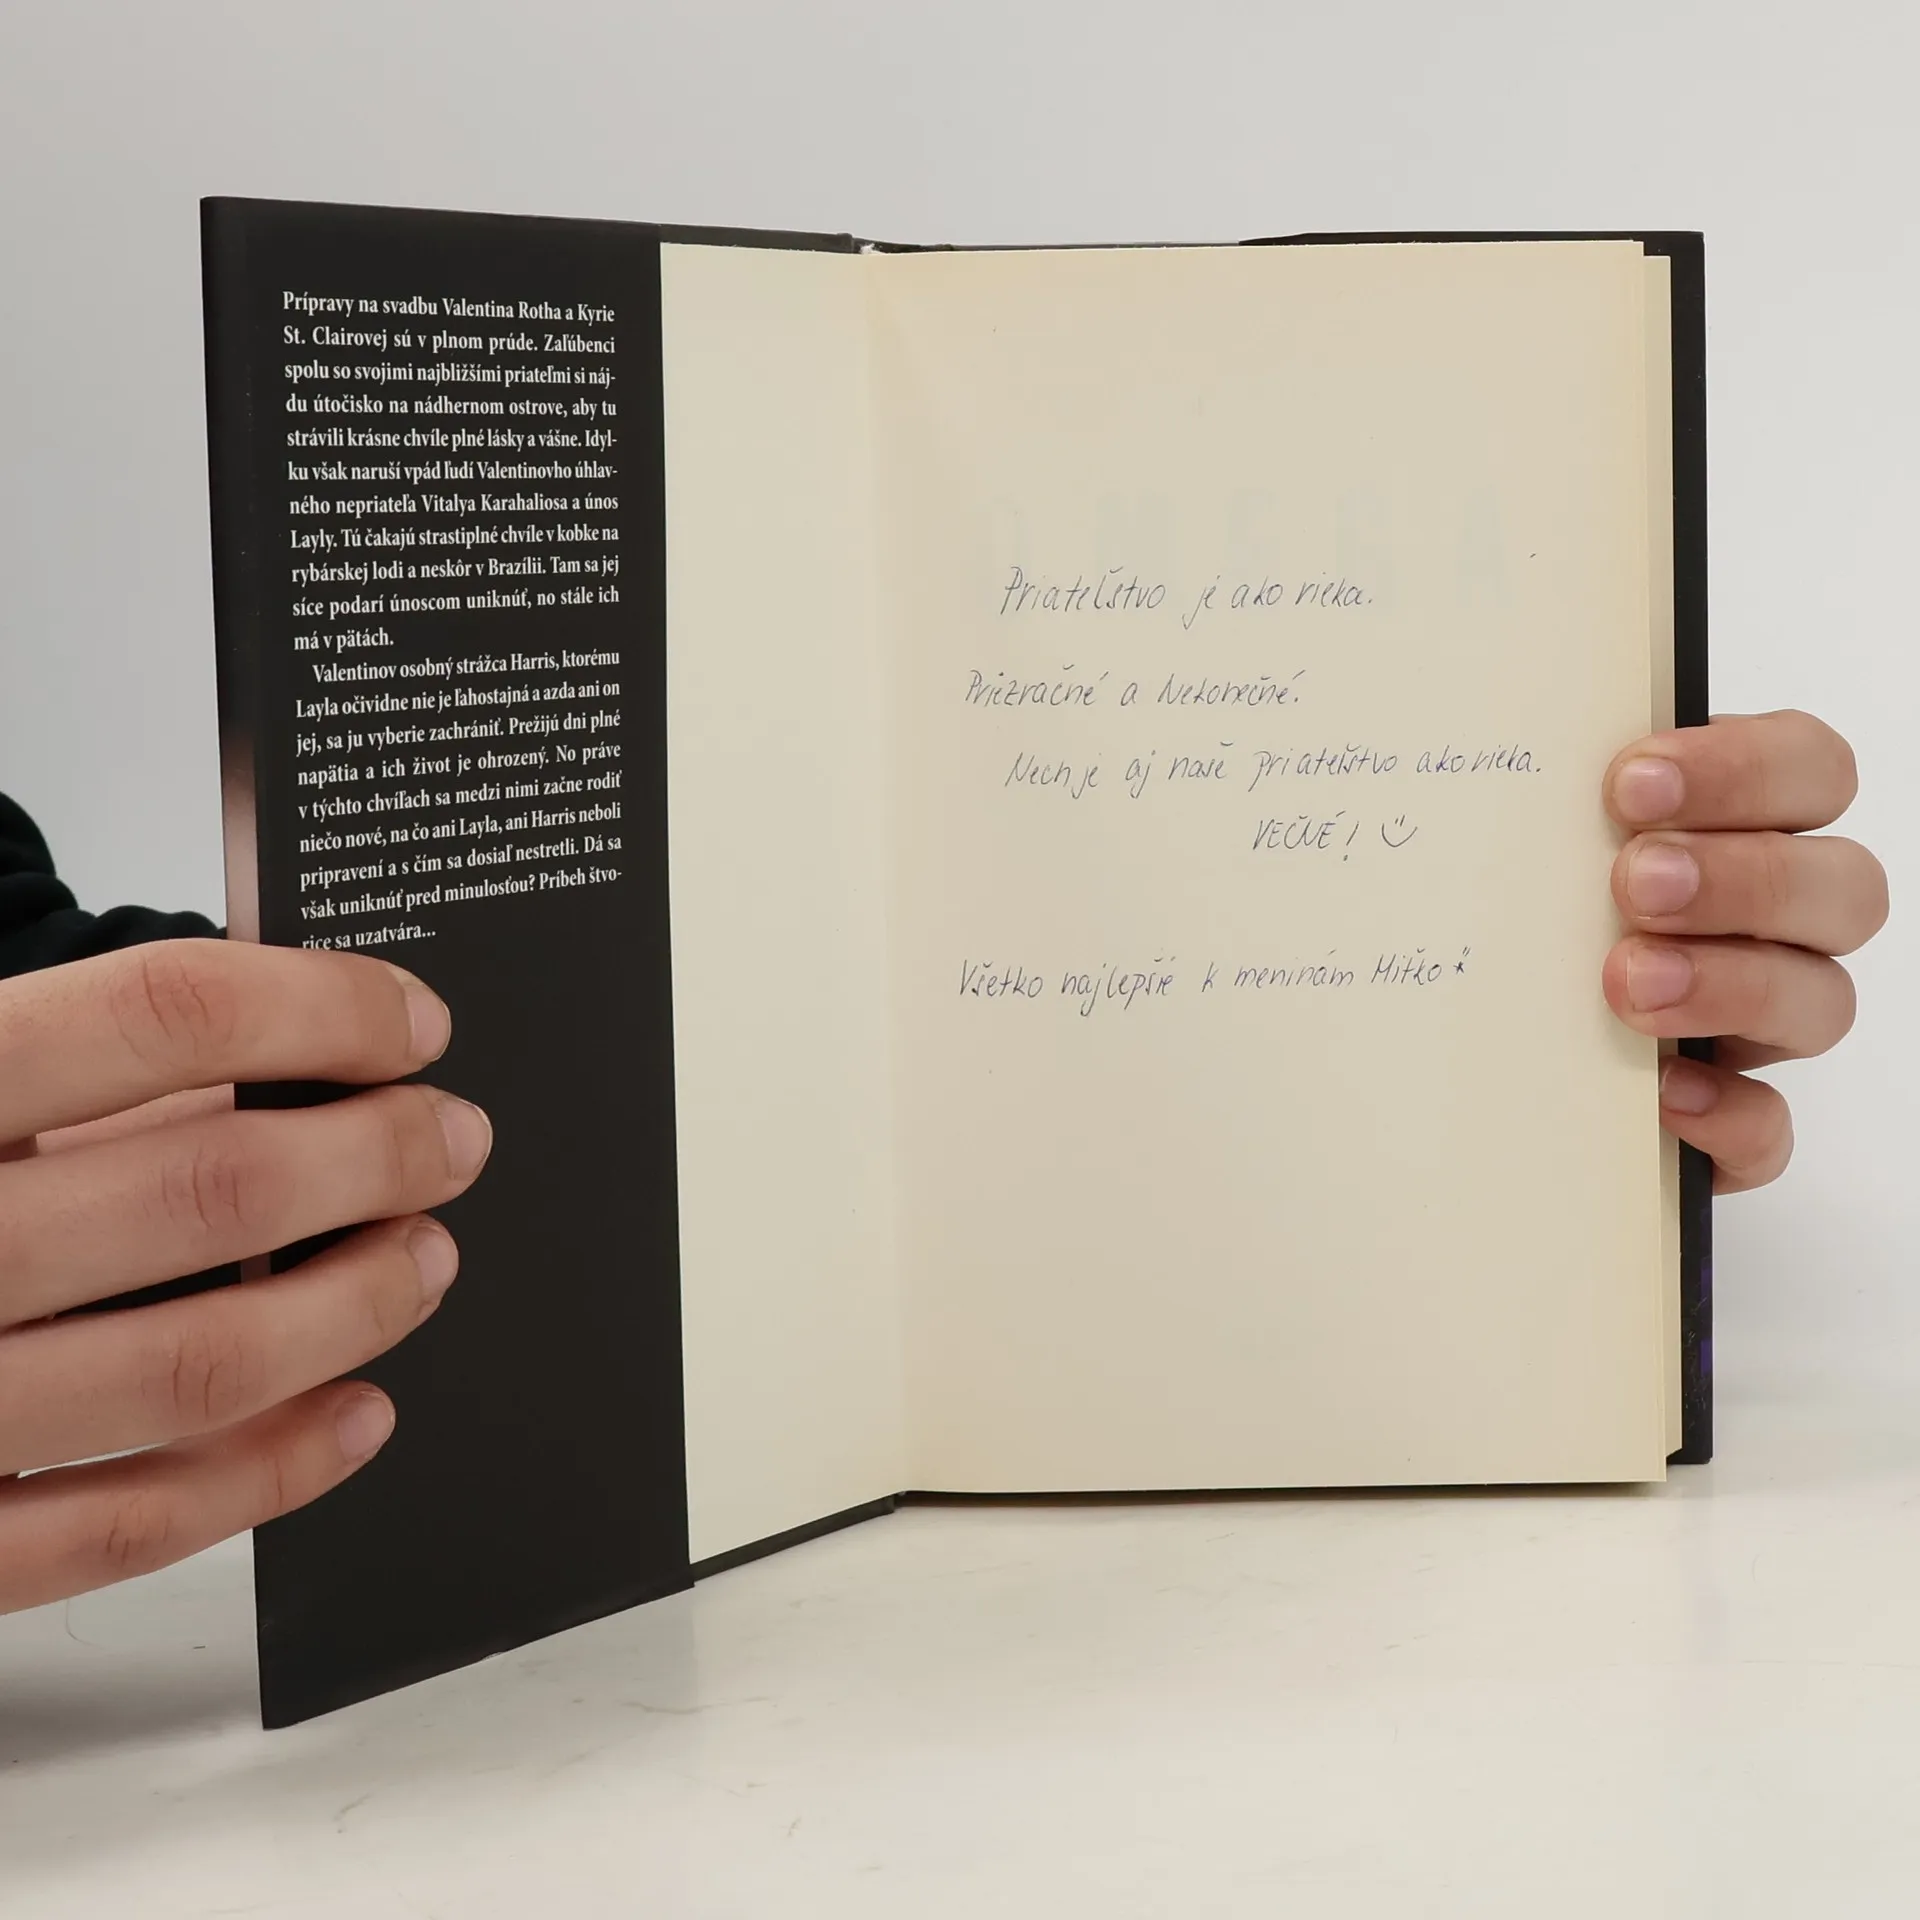 Prípravy na svadbu Valentina Rotha a Kyrie
St. Clairovej sú v plnom prúde. Zaľúbenci
spolu so svojimi najbližšími priateľmi si náj-
du útočisko na nádhernom ostrove, aby tu
strávili krásne chvíle plné lásky a vášne. Idyl-
ku však naruší vpád ľudí Valentinovho úhlav-
ného nepriateľa Vitalya Karahaliosa a únos
Layly. Tú čakajú strastiplné chvíle v kobke na
rybárskej lodi a neskôr v Brazílii. Tam sa jej
síce podarí únoscom uniknúť, no stále ich
má v pätách.
Valentinov osobný strážca Harris, ktorému
Layla očividne nie je ľahostajná a azda ani on
jej, sa ju vyberie zachrániť. Prežijú dni plné
napätia a ich život je ohrozený. No práve
v týchto chvíľach sa medzi nimi začne rodiť
niečo nové, na čo ani Layla, ani Harris neboli
pripravení a s čím sa dosiaľ nestretli. Dá sa
však uniknúť pred minulosťou? Príbeh štvo-
rice sa uzatvára...
Priateľstvo je ako rieka.
Priezračné a Nekonečné.
Nech je aj naše priateľstvo ako rieka.
VEČNÉ!
Všetko najlepšie k meninám Miťko *